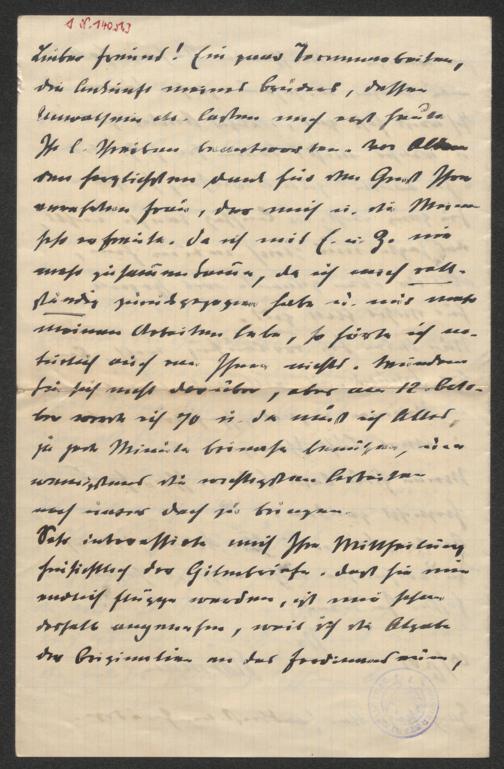 I. N. 140563
Lieber Freund! Ein paar Terminarbeiten,
die Ankunft meines Bruders, dessen
Unwohlsein etc. lassen mich erst heute
Ihr l. Schreiben beantworten. Vor Allem
den herzlichsten Dank für den Gruß Ihrer
verehrten Frau, der mich u. die Meinen
sehr erfreute. Da ich mit E. u. Z. nie
mehr zusammenkomme, da ich mich voll-
ständig zurückgezogen habe u. nur mehr
meinen Arbeiten lebe, so hörte ich na-
türlich auch von Ihnen nichts. Wundern
Sie sich nicht darüber, aber am 12. Octo-
ber werde ich 70 u. da muß ich Alles,
ja jede Minute beinahe benützen, um
wenigstens die wichtigsten Arbeiten
noch unter Dach zu bringen.
Sehr interessierte mich Ihre Mittheilung
hinsichtlich der Gilmbriefe. Daß sie nun
endlich flügge werden, ist mir schon
deshalb angenehm, weil ich die Abgabe
der Originalien an das Ferdinandeum,